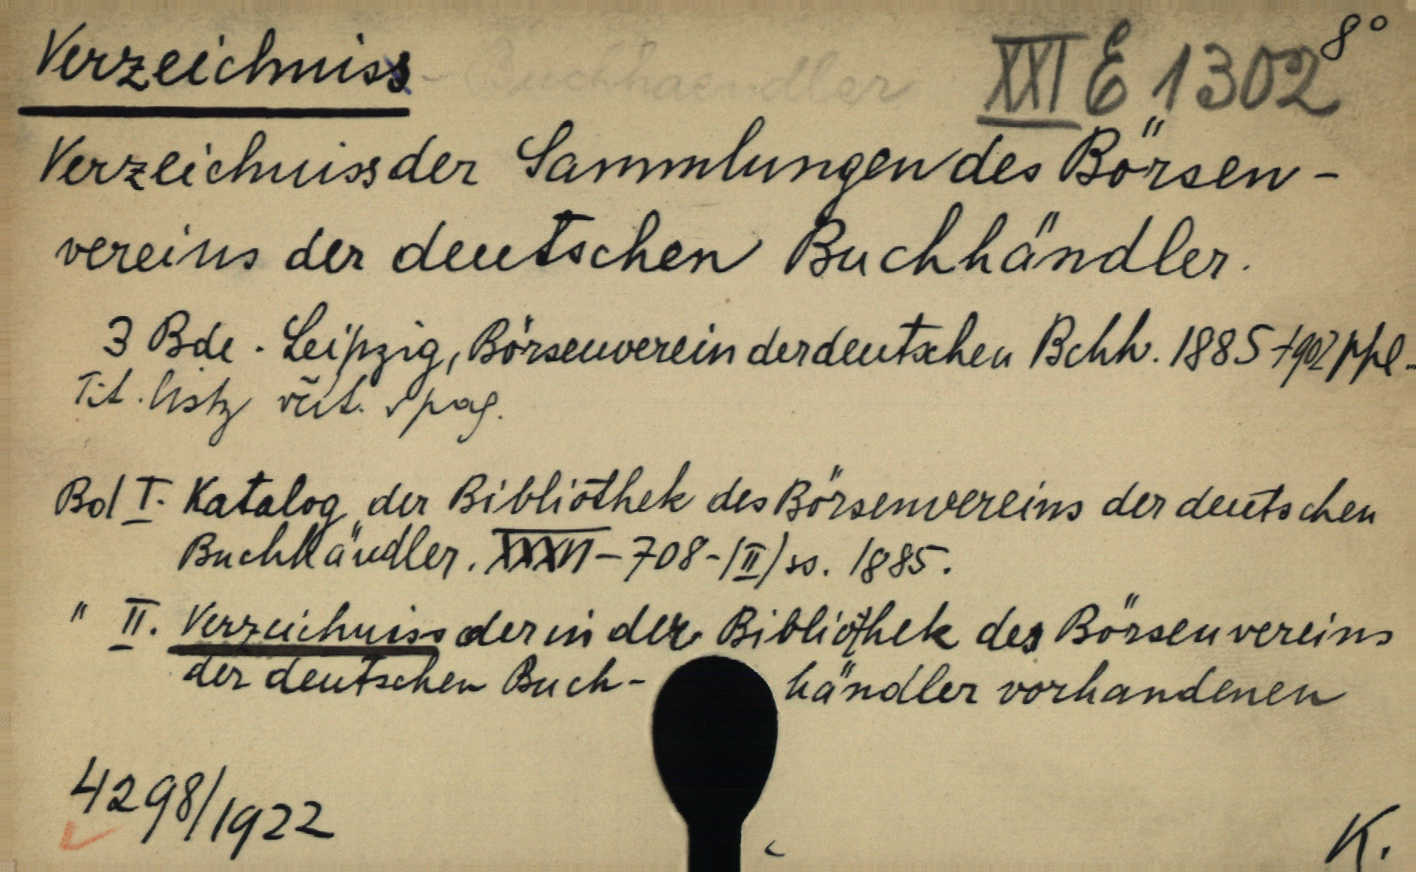 Verzeichniss - Buchhaendler XXI E 1302 8°
Verzeichniss der Sammlungen des Börsen-
vereins der deutschen Buchhändler.
3 Bde. Leipzig, Börsenverein der deutschen Bchh. 1885-1902
Tit. listy
Bd I. Katalog der Bibliothek des Börsenvereins der deutschen
Buchhändler. XXXVI-708-(II) ss. 1885.
" II. Verzeichniss der in der Bibliothek des Börsenvereins
der deutschen Buch- händler vorhandenen
4298/1922
K.